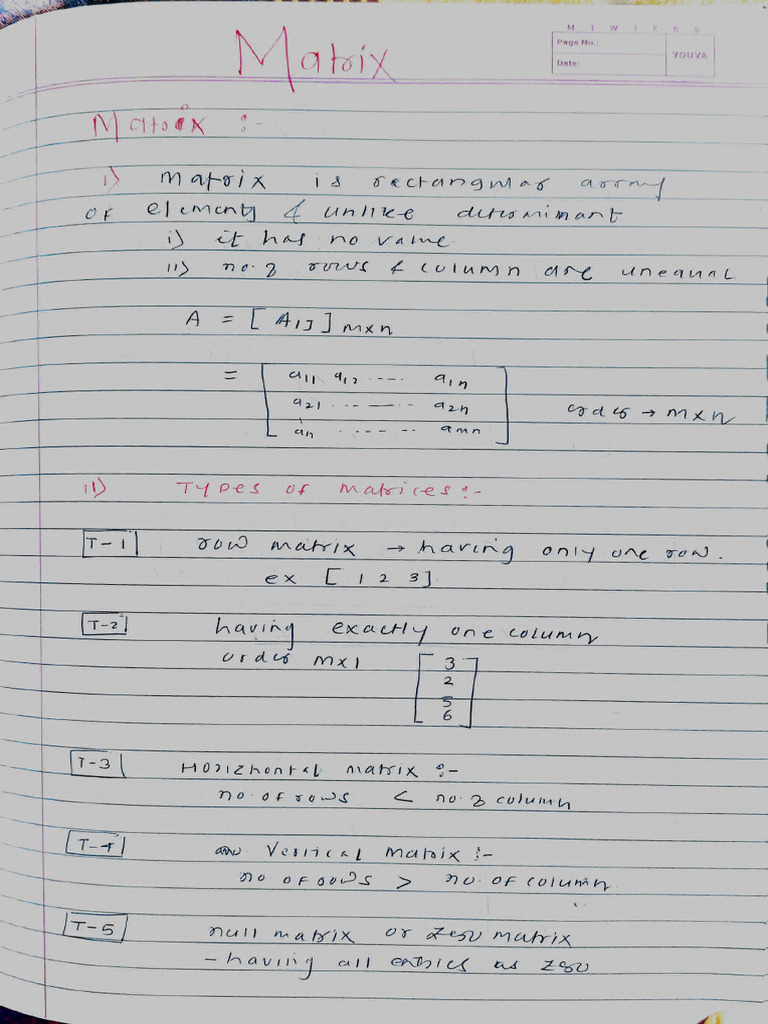 M T W T F S S
Page No.:
Date:
YOUVA
Matrix
Matrix :-
i) Matrix is rectangular array
of elements & unlike determinant
i) it has no value
ii) no. of rows & column are unequal
A = [ Aij ] m×n
= [ a11 a12 ---- a1n
a21 ------- a2n
an ------ amn ] order → m×n
ii) Types of matrices :-
T-1 row matrix → having only one row.
ex [ 1 2 3 ]
T-2 having exactly one column
order m×1 [ 3
2
5
6 ]
T-3 Horizhontal matrix :-
no. of rows < no. of column
T-4 Vertical Matrix :-
no. of rows > no. of column
T-5 null matrix or zero matrix
- having all entries as zero